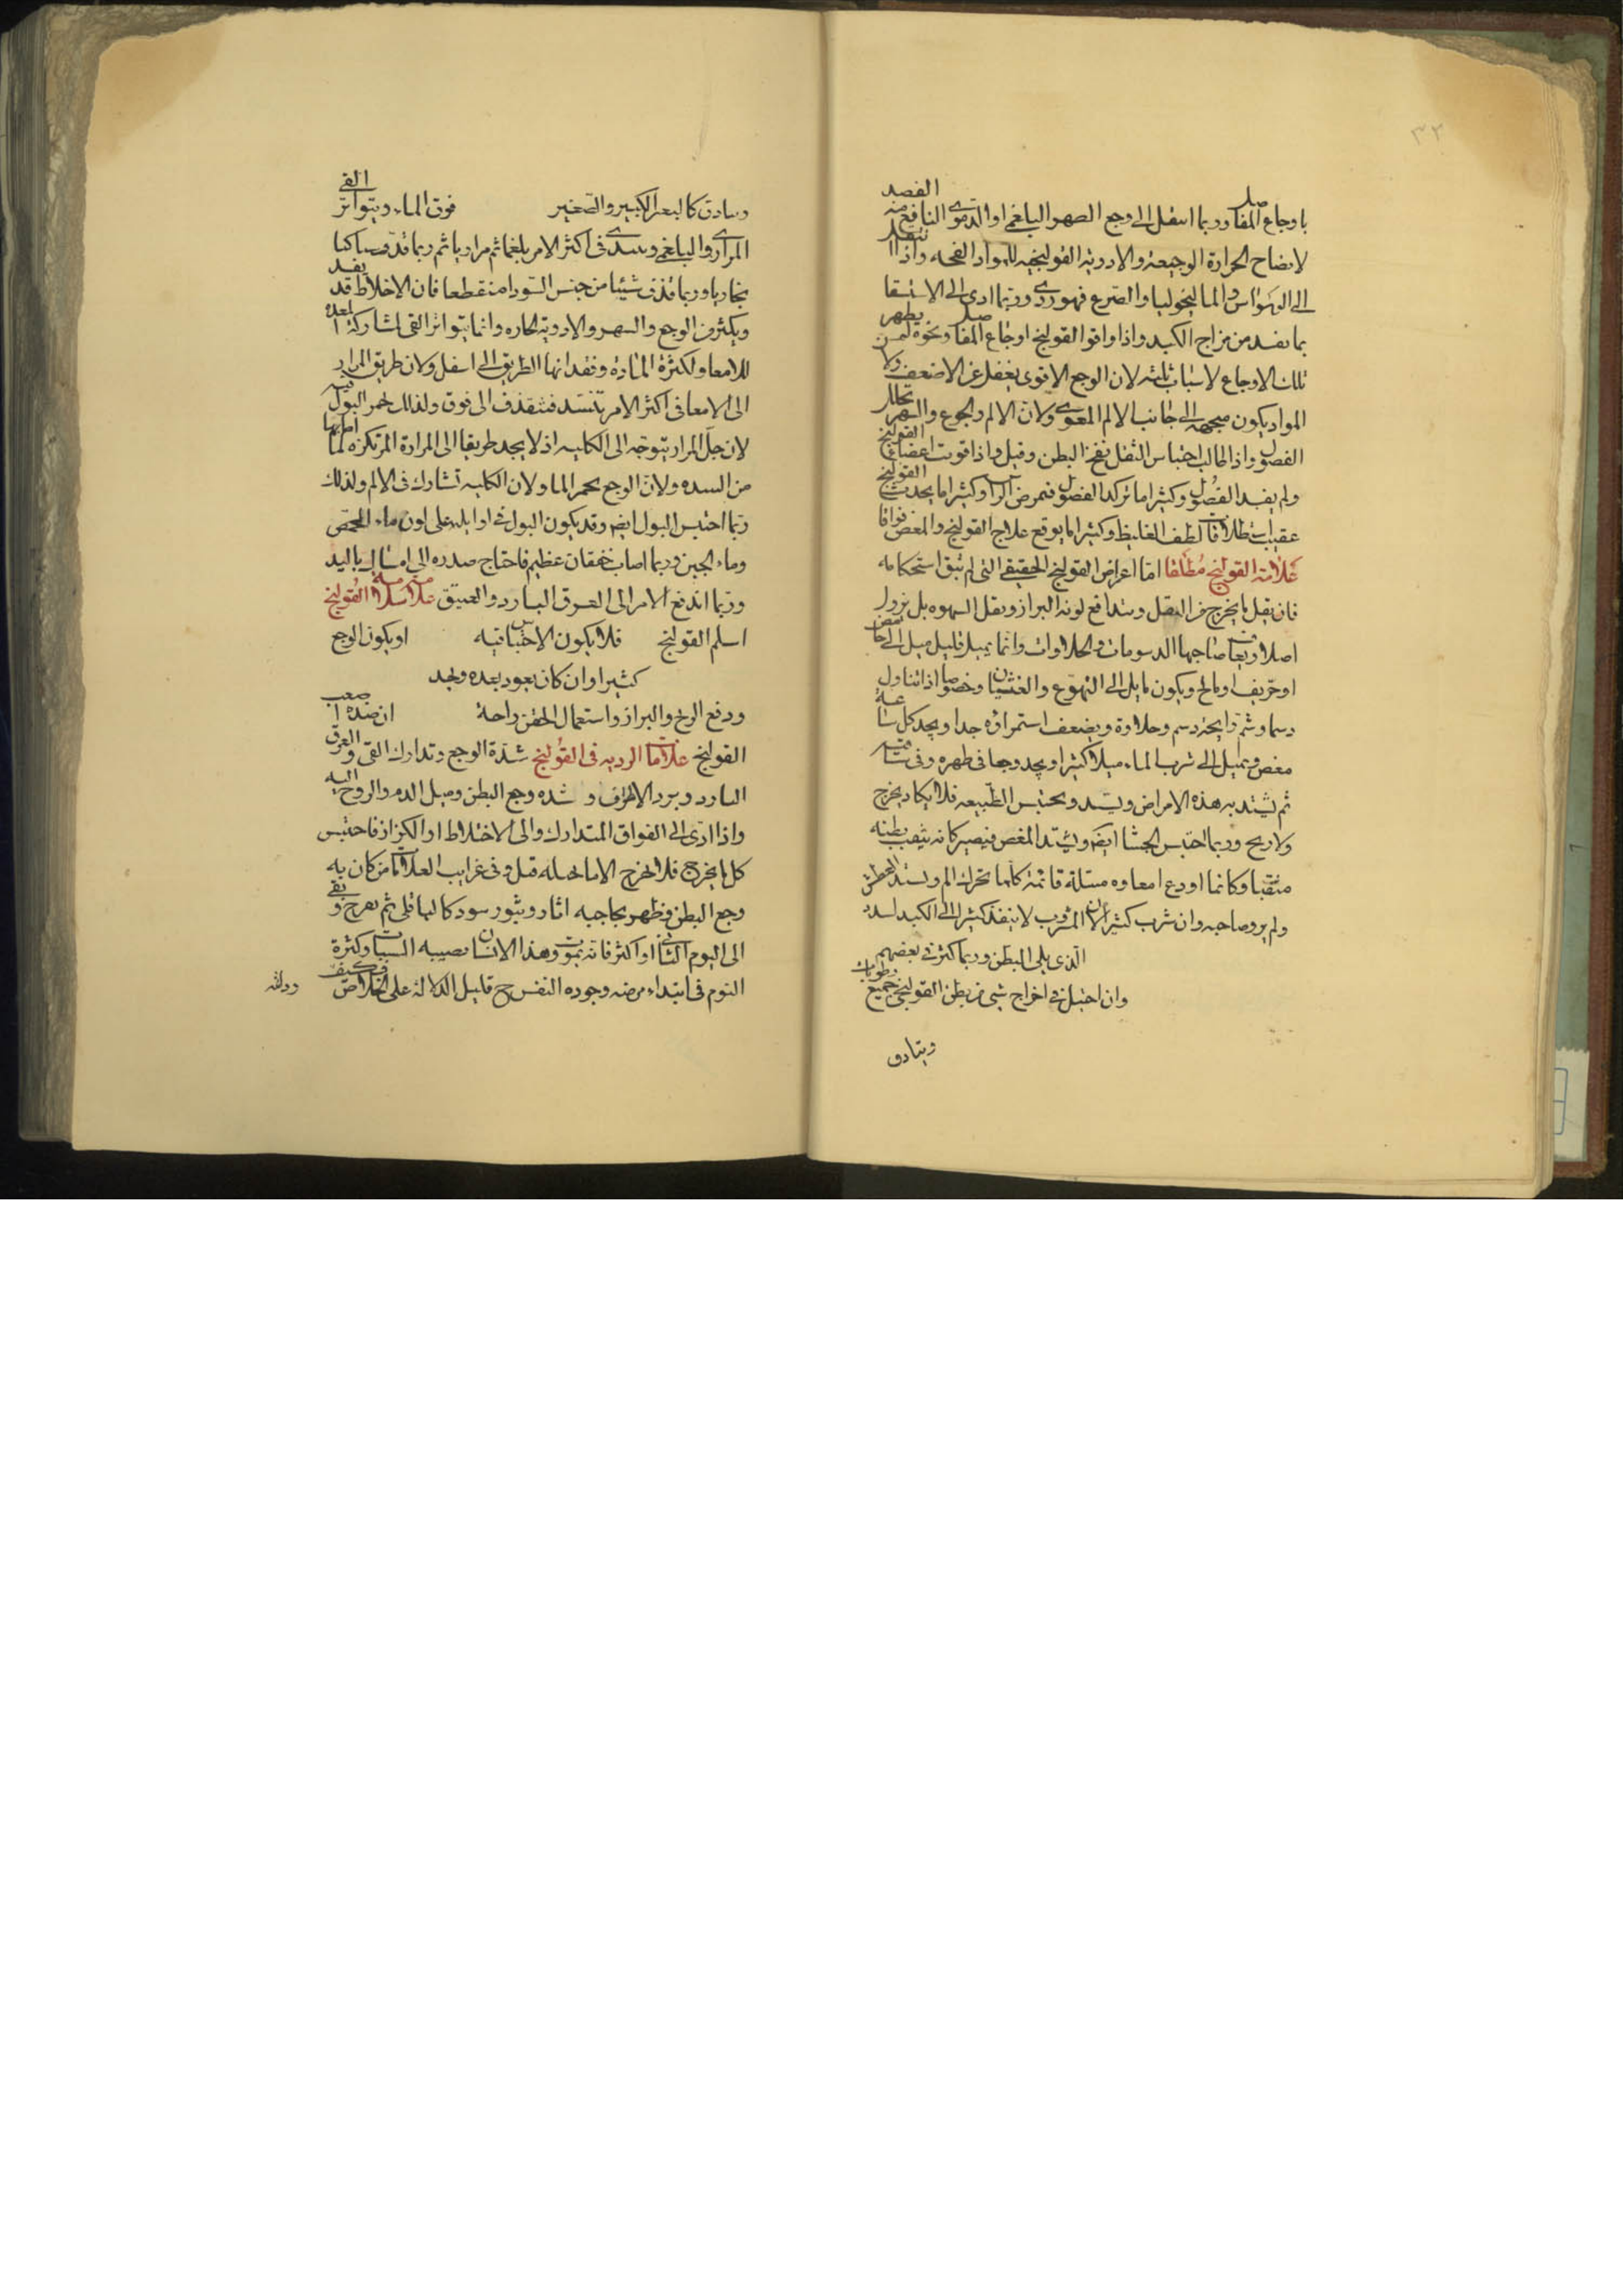 ٣٢
باوجاع المفاصل وربما انتقل الى وجع الظهر البلغمى او الدموى النافع منه الفصد
لانضاح الحرارة الوجيعة والادوية القولنجيه للمواد الفجه واذا انتقل
الى الوسواس والماليخوليا والصرع فهو ردى وربما ادى الى الاستسقا
بما يفسد من مزاج الكبد واذا وافق القولنج اوجاع المفاصل ونحوه لم يظهر
تلك الاوجاع لاسباب ثلثه لان الوجع الاقوى يغفل عن الاضعف ولا
المواد يكون متجهه الى جانب الالم المعوى ولان الالم والجوع والسهر تحلل
الفضول واذا طالت احتباس الثفل نفخ البطن وقتل واذا قويت اعضا القولنج
ولم يفسد الفضول وكثيرا ما تركد الفضول فتمرض اخرا وكثيرا ما يحدث القولنج
عقيب استطلاقات لطف الغليظ وكثيرا ما يوقع علاج القولنج والمغص فواقا
علامة القولنج مطلقا اما اعراض القولنج الحقيقى التى لم تبق استحكامه
فان يقل ما يخرج من الثفل ويتدافع لونه البراز ويقل الشهوه بل يزول
اصلا ويعاف صاحبها الدسومات والحلاوات وانما يميل قليل ميل الى حامض
او حريف او مالح ويكون مايل الى التهوع والغثيان وخصوصا اذا تناول
دسما وشم رايحة دسم وحلاوة ويضعف استمراؤه جدا ويجد كل ساعة
مغص ويميل الى شرب الماء ميلا كثيرا ويجد وجعا فى ظهره وفى ساقيه
ثم يشتد به هذه الاعراض ويشتد ويحتبس الطبيعه فلا يكاد يخرج
ولا ريح وربما احتبس الجشا ايضا ويشتد المغص فيصير كانه يثقب بطنه
مثقبا وكانما اودع امعاوه مسلة قائمة كلما تحرك الم ويشتد العطش
ولم يرو صاحبه وان شرب كثيرا لان المشروب لا ينفذ كثيرا الى الكبد لسدد
الذى يلى البطن وربما كثر فى بعضهم
وان احتيل فى اخراج شى من بطن القولنجى جميع رطوبات
وبنادق
وبنادق كالبعر الكبير والصغير فوق الماء ويتواتر القى
المرارى والبلغمى ويبتدى فى اكثر الامر بلغما ثم مراريا ثم ربما قذف
بخاريا وربما قذف شيئا من جنس السودا منقطعا فان الاخلاط قد يفسد
ويكثر من الوجع والسهر والادوية الحاره وانما يتواتر القى لمشاركة المعدة
للامعا ولكثرة المادة وفقدانها الطريق الى اسفل ولان طريق المرار
الى الامعا فى اكثر الامر تنسد فتقذف الى فوق ولذلك يحمر البول فيه
لان جل المرار يتوجه الى الكليه اذ لا يجد طريقا الى المرارة المرتكزه لما اصابها
من السده ولان الوجع يحمر الماء ولان الكليه تشارك فى الالم ولذلك
ربما احتبس البول ايضا وقد يكون البول فى اوايله على لون ماء الحمص
وماء الجبن وربما اصاب خفقان عظيم فاحتاج صدره الى امساك باليد
وربما اندفع الامر الى العرق البارد والغشى علامات سلامة القولنج
اسلم القولنج فلا يكون الاحتباس فيه او يكون الوجع
كثيرا وان كان يعود بعده ويجد
ودفع الريح والبراز واستعمال الحقن راحة ان ضده اصعب
القولنج علامات الرديه فى القولنج شدة الوجع وتدارك القى والعرق
البارد وبرد الاطراف و شده وجع البطن وميل الدم والروح اليه
واذا ادى الى الفواق المتدارك والى الاختلاط او الكزاز فاحتبس
كل ما يخرج فلا يخرج الا ما بالحيله قتل وفى غرايب العلامات من كان به
وجع البطن وظهر بحاجبه اثار وبثور سود كالباقلى ثم تقرح وبقى
الى اليوم الثانى او اكثر فانه يموت وهذا الانسان يصيبه السبات وكثرة
النوم فى ابتداء مرضه وجوده النفس ح قليل الدلالة على الخلاص فكيف